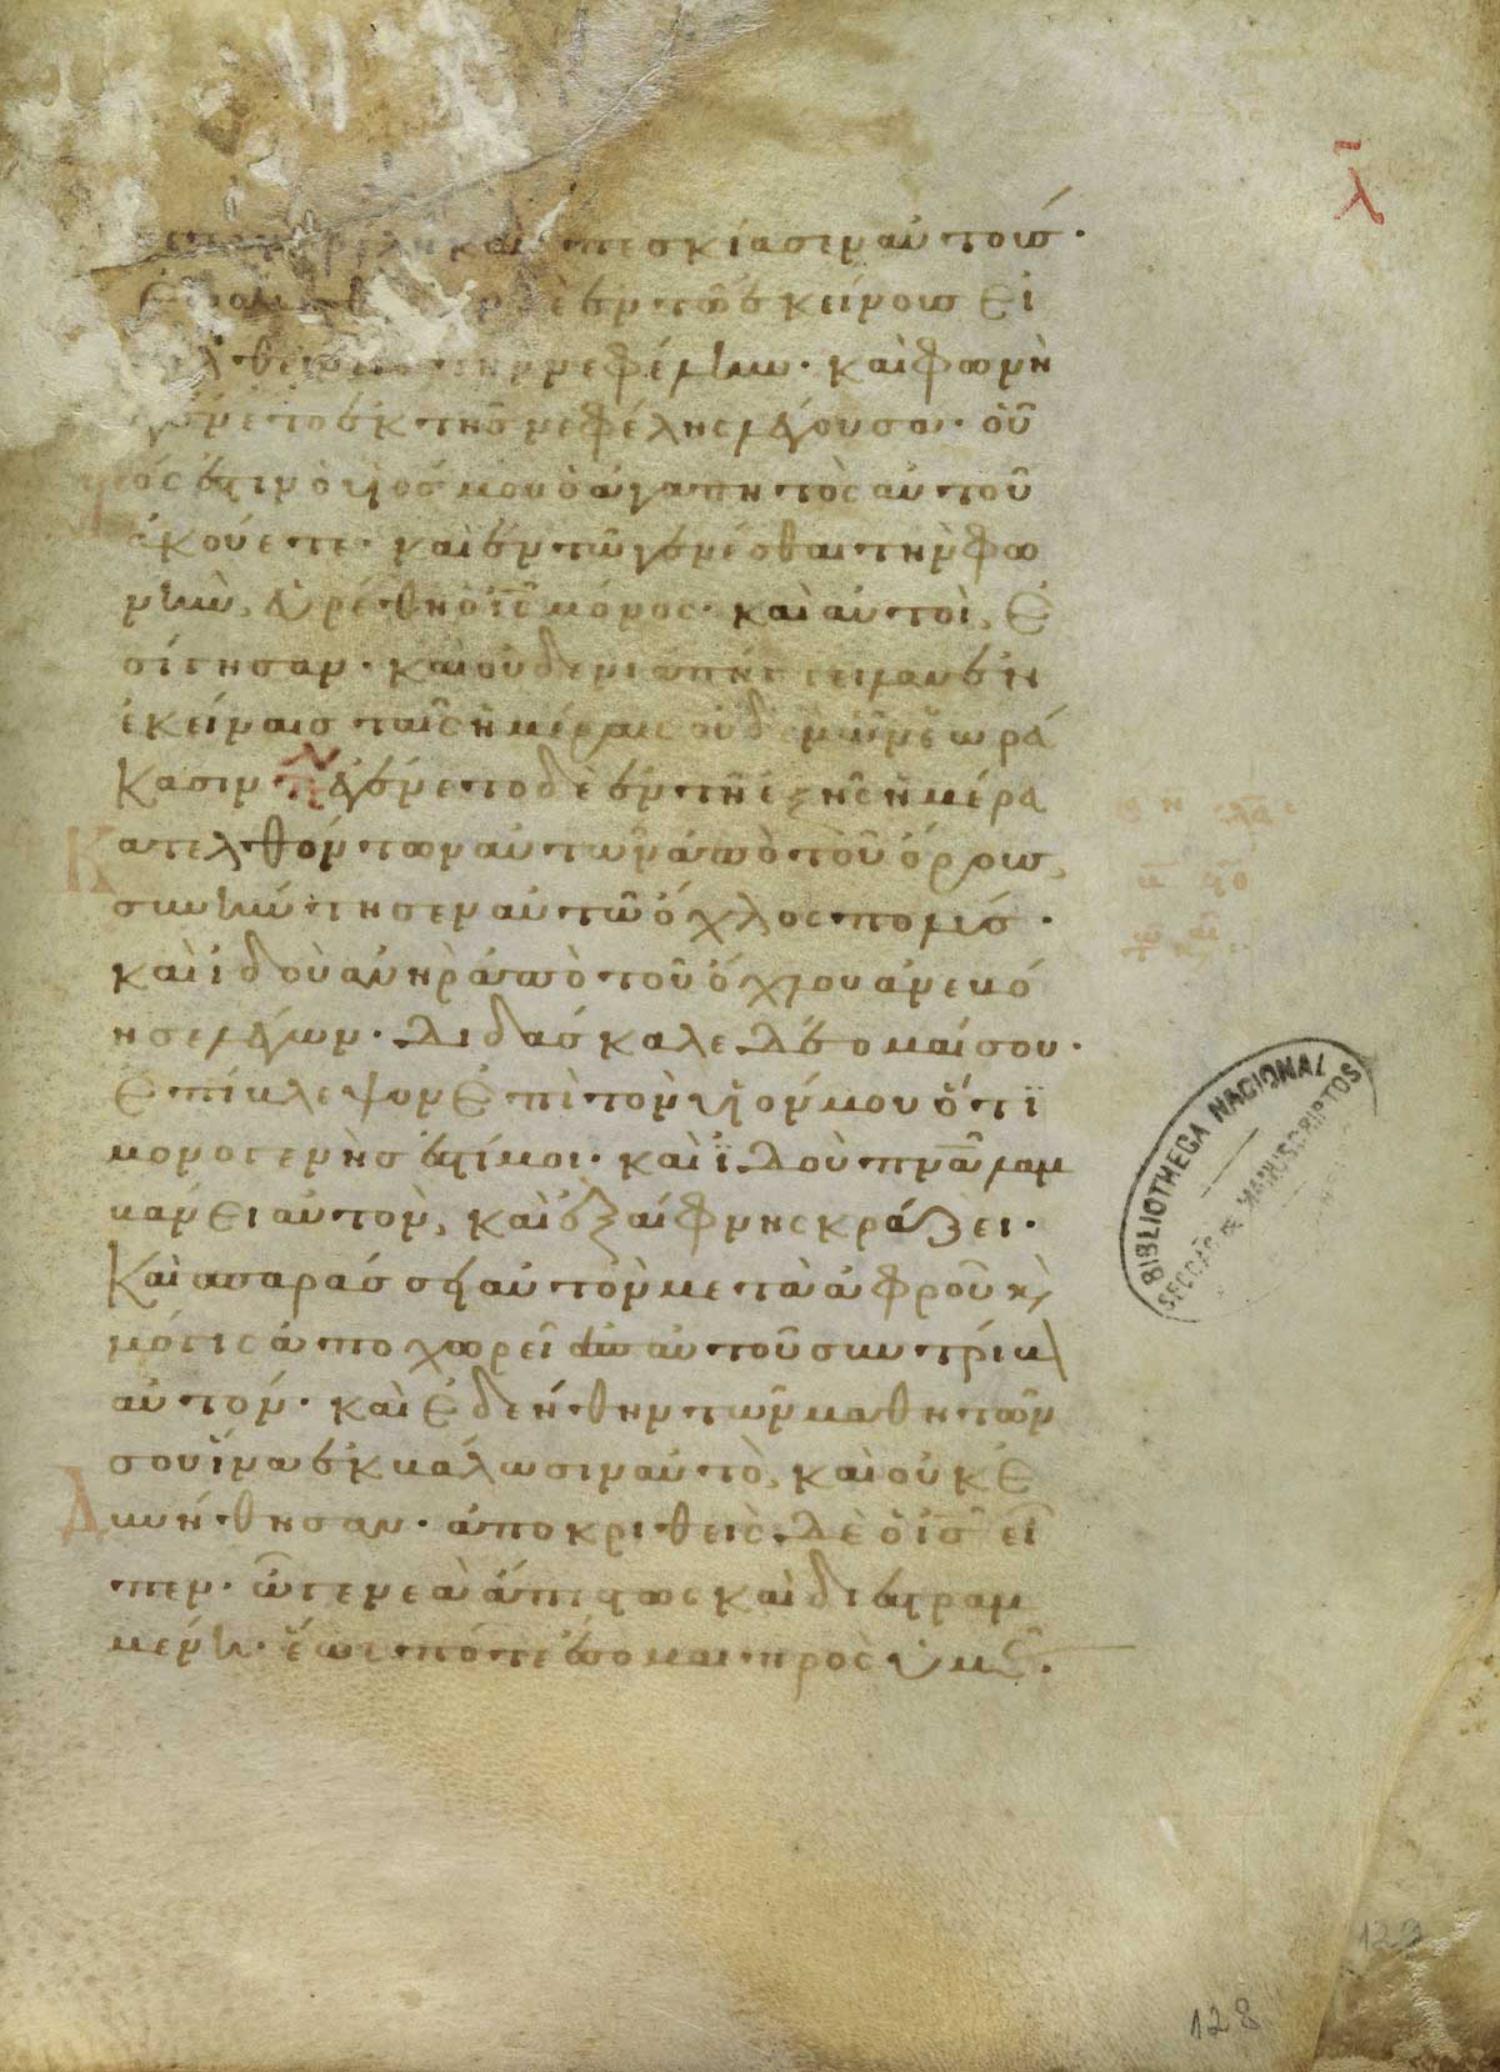 λ̄
νεφέλη καὶ ἐπεσκίασεν αὐτούς·
δὲ ἐν τῶ ἐκείνους εἰ
σελθεῖν εἰς τὴν νεφέλην· καὶ φωνὴ
ἐγένετο ἐκ τῆς νεφέλης λέγουσα· οὗ
τός ἐστιν ὁ υἱός μου ὁ ἀγαπητὸς αὐτοῦ
ἀκούετε· καὶ ἐν τῶ γενέσθαι τὴν φω
νὴν, εὑρέθη ὁ ις μόνος· καὶ αὐτοὶ, ἐ
σίγησαν· καὶ οὐδενὶ ἀπήγγειλαν ἐν
ἐκείναις ταῖς ἡμέραις οὐδὲν ὧν ἑωρά
κασιν· ἐγένετο δὲ ἐν τῆ ἑξῆς ἡμέρα
κατελθόντων αὐτῶν ἀπὸ τοῦ ὄρους,
συνήντησεν αὐτῶ ὄχλος πολύς·
καὶ ἰδοὺ ἀνὴρ ἀπὸ τοῦ ὄχλου ἀνεβό
ησε λέγων· διδάσκαλε δέομαί σου·
ἐπίβλεψον ἐπὶ τὸν υἱόν μου ὅτι
μονογενής ἐστί μοι· καὶ ἰδοὺ πνα λαμ
βάνει αὐτὸν, καὶ ἐξαίφνης κράζει·
καὶ σπαράσσει αὐτὸν μετὰ ἀφροῦ κὶ
μόγις ἀποχωρεῖ ἀπ αὐτοῦ συντρίβον
αὐτόν· καὶ ἐδεήθην τῶν μαθητῶν
σου ἵνα ἐκβάλωσιν αὐτὸ, καὶ οὐκ ἐ
δυνήθησαν· ἀποκριθεὶς δὲ ὁ ις εἶ
πεν· ὦ γενεὰ ἄπιστος καὶ διεστραμ
μένη· ἕως πότε ἔσομαι πρὸς ὑμᾶς·
BIBLIOTHECA NACIONAL
SECCÃO DE MANUSCRIPTOS
128